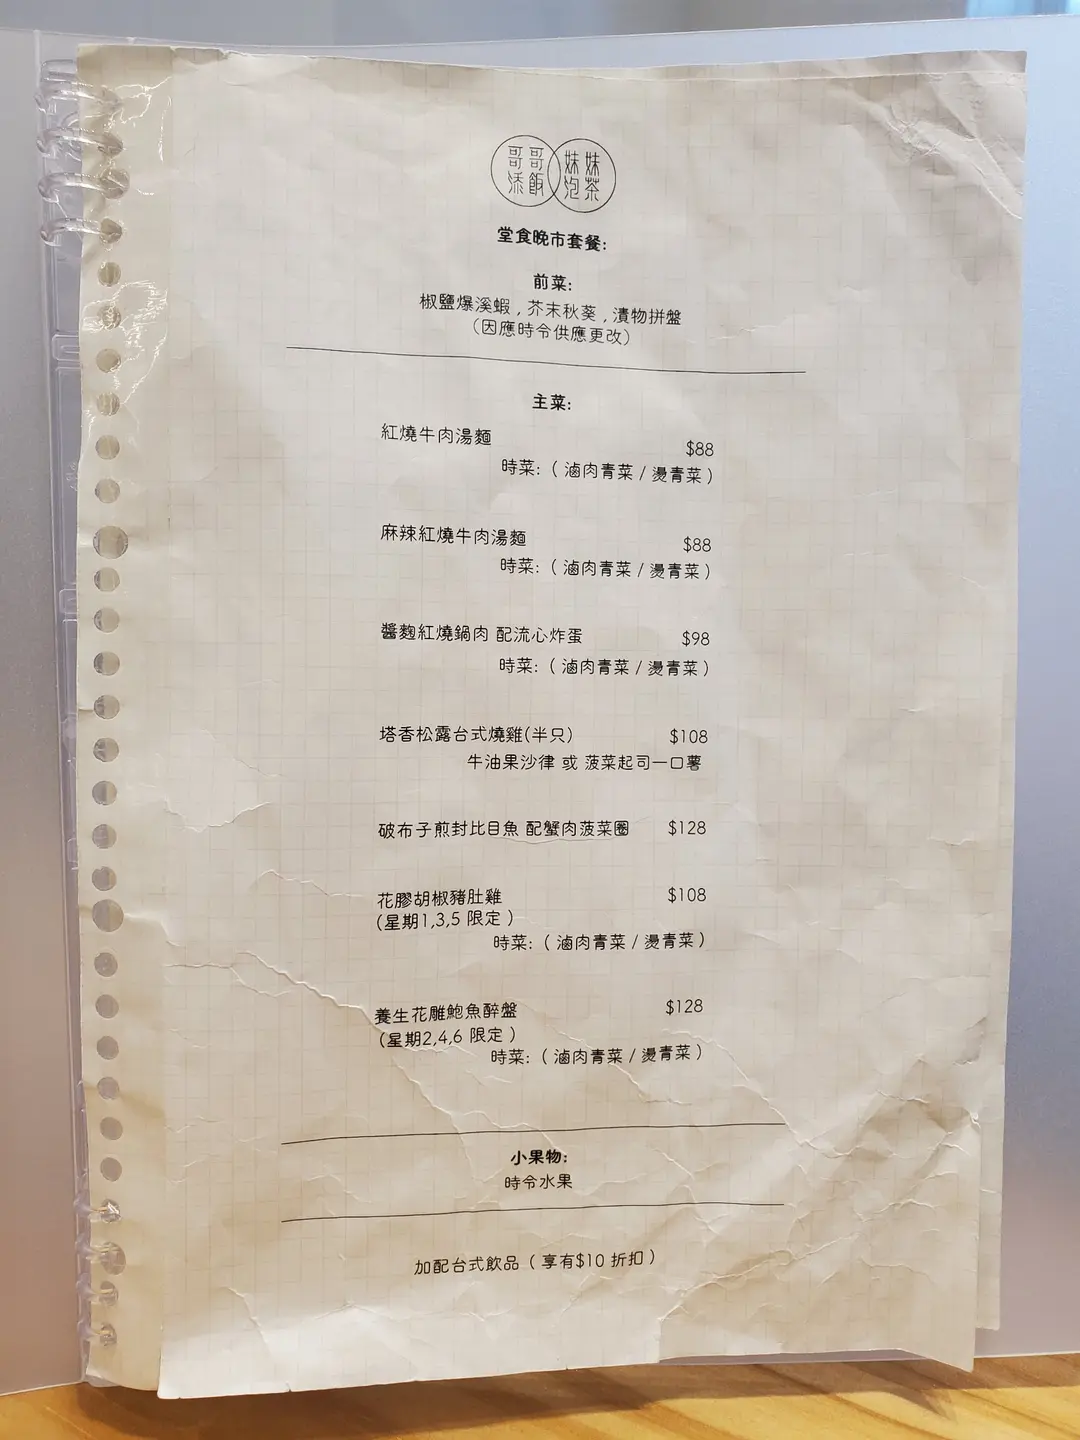 哥哥 妹妹
添飯 泡茶
堂食晚市套餐:
前菜:
椒鹽爆溪蝦 , 芥末秋葵 , 漬物拼盤
(因應時令供應更改)
主菜:
紅燒牛肉湯麵 $88
時菜: ( 滷肉青菜 / 燙青菜 )
麻辣紅燒牛肉湯麵 $88
時菜: ( 滷肉青菜 / 燙青菜 )
醬麴紅燒鍋肉 配流心炸蛋 $98
時菜: ( 滷肉青菜 / 燙青菜 )
塔香松露台式燒雞(半只) $108
牛油果沙律 或 菠菜起司一口薯
破布子煎封比目魚 配蟹肉菠菜圈 $128
花膠胡椒豬肚雞 $108
(星期1,3,5 限定 )
時菜: ( 滷肉青菜 / 燙青菜 )
養生花雕鮑魚醉盤 $128
(星期2,4,6 限定 )
時菜: ( 滷肉青菜 / 燙青菜 )
小果物:
時令水果
加配台式飲品 ( 享有$10 折扣 )